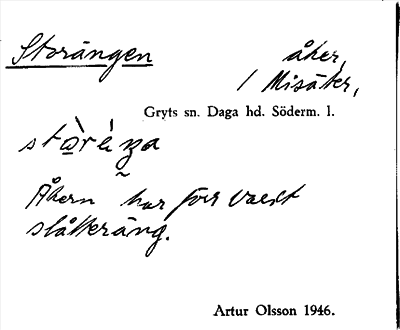 Storängen
åker,
/ Misäter,
Gryts sn. Daga hd. Söderm. l.
Åkern har förr varit
slåtteräng.
Artur Olsson 1946.